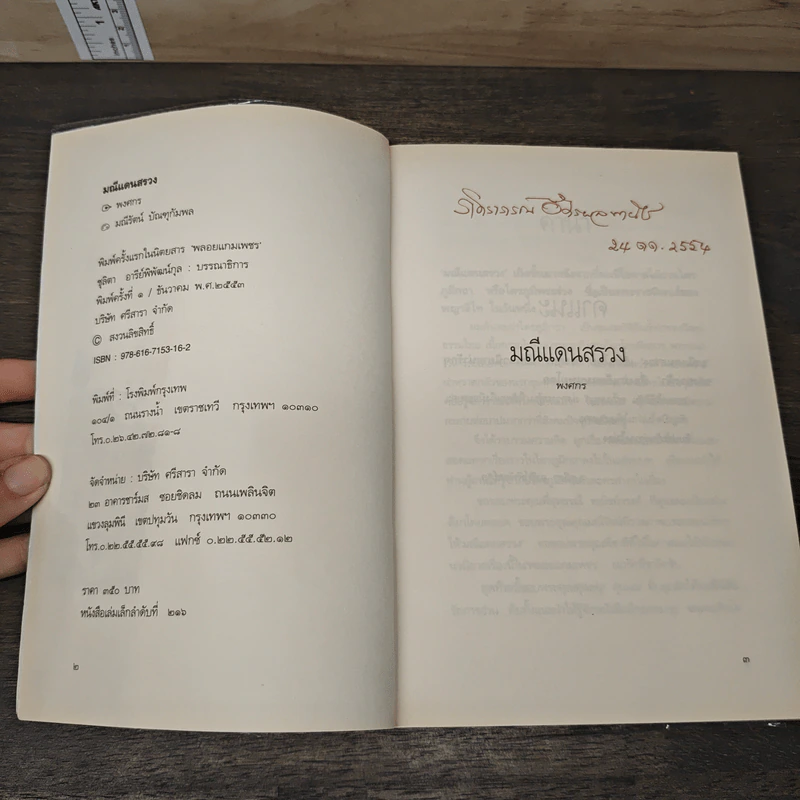 มณีแดนสรวง
พงศกร
มณีรัตน์ บัณฑุกัมพล
พิมพ์ครั้งแรกในนิตยสาร 'พลอยแกมเพชร'
ชุลิตา อารีย์พิพัฒน์กุล : บรรณาธิการ
พิมพ์ครั้งที่ ๑ / ธันวาคม พ.ศ.๒๕๕๓
บริษัท ศรีสารา จำกัด
© สงวนลิขสิทธิ์
ISBN : 978-616-7153-16-2
พิมพ์ที่ : โรงพิมพ์กรุงเทพ
๑๐๔/๑ ถนนรางน้ำ เขตราชเทวี กรุงเทพฯ ๑๐๓๑๐
โทร.๐.๒๖.๔๒.๗๒.๘๑-๘
จัดจำหน่าย : บริษัท ศรีสารา จำกัด
๒๓ อาคารชาร์มส ซอยชิดลม ถนนเพลินจิต
แขวงลุมพินี เขตปทุมวัน กรุงเทพฯ ๑๐๓๓๐
โทร.๐.๒๒.๕๕.๕๕.๙๘ แฟกซ์ ๐.๒๒.๕๕.๕๒.๑๒
ราคา ๓๕๐ บาท
หนังสือเล่มเล็กลำดับที่ ๒๑๖
๒
24 ๑๑. 2554
มณีแดนสรวง
พงศกร
๓